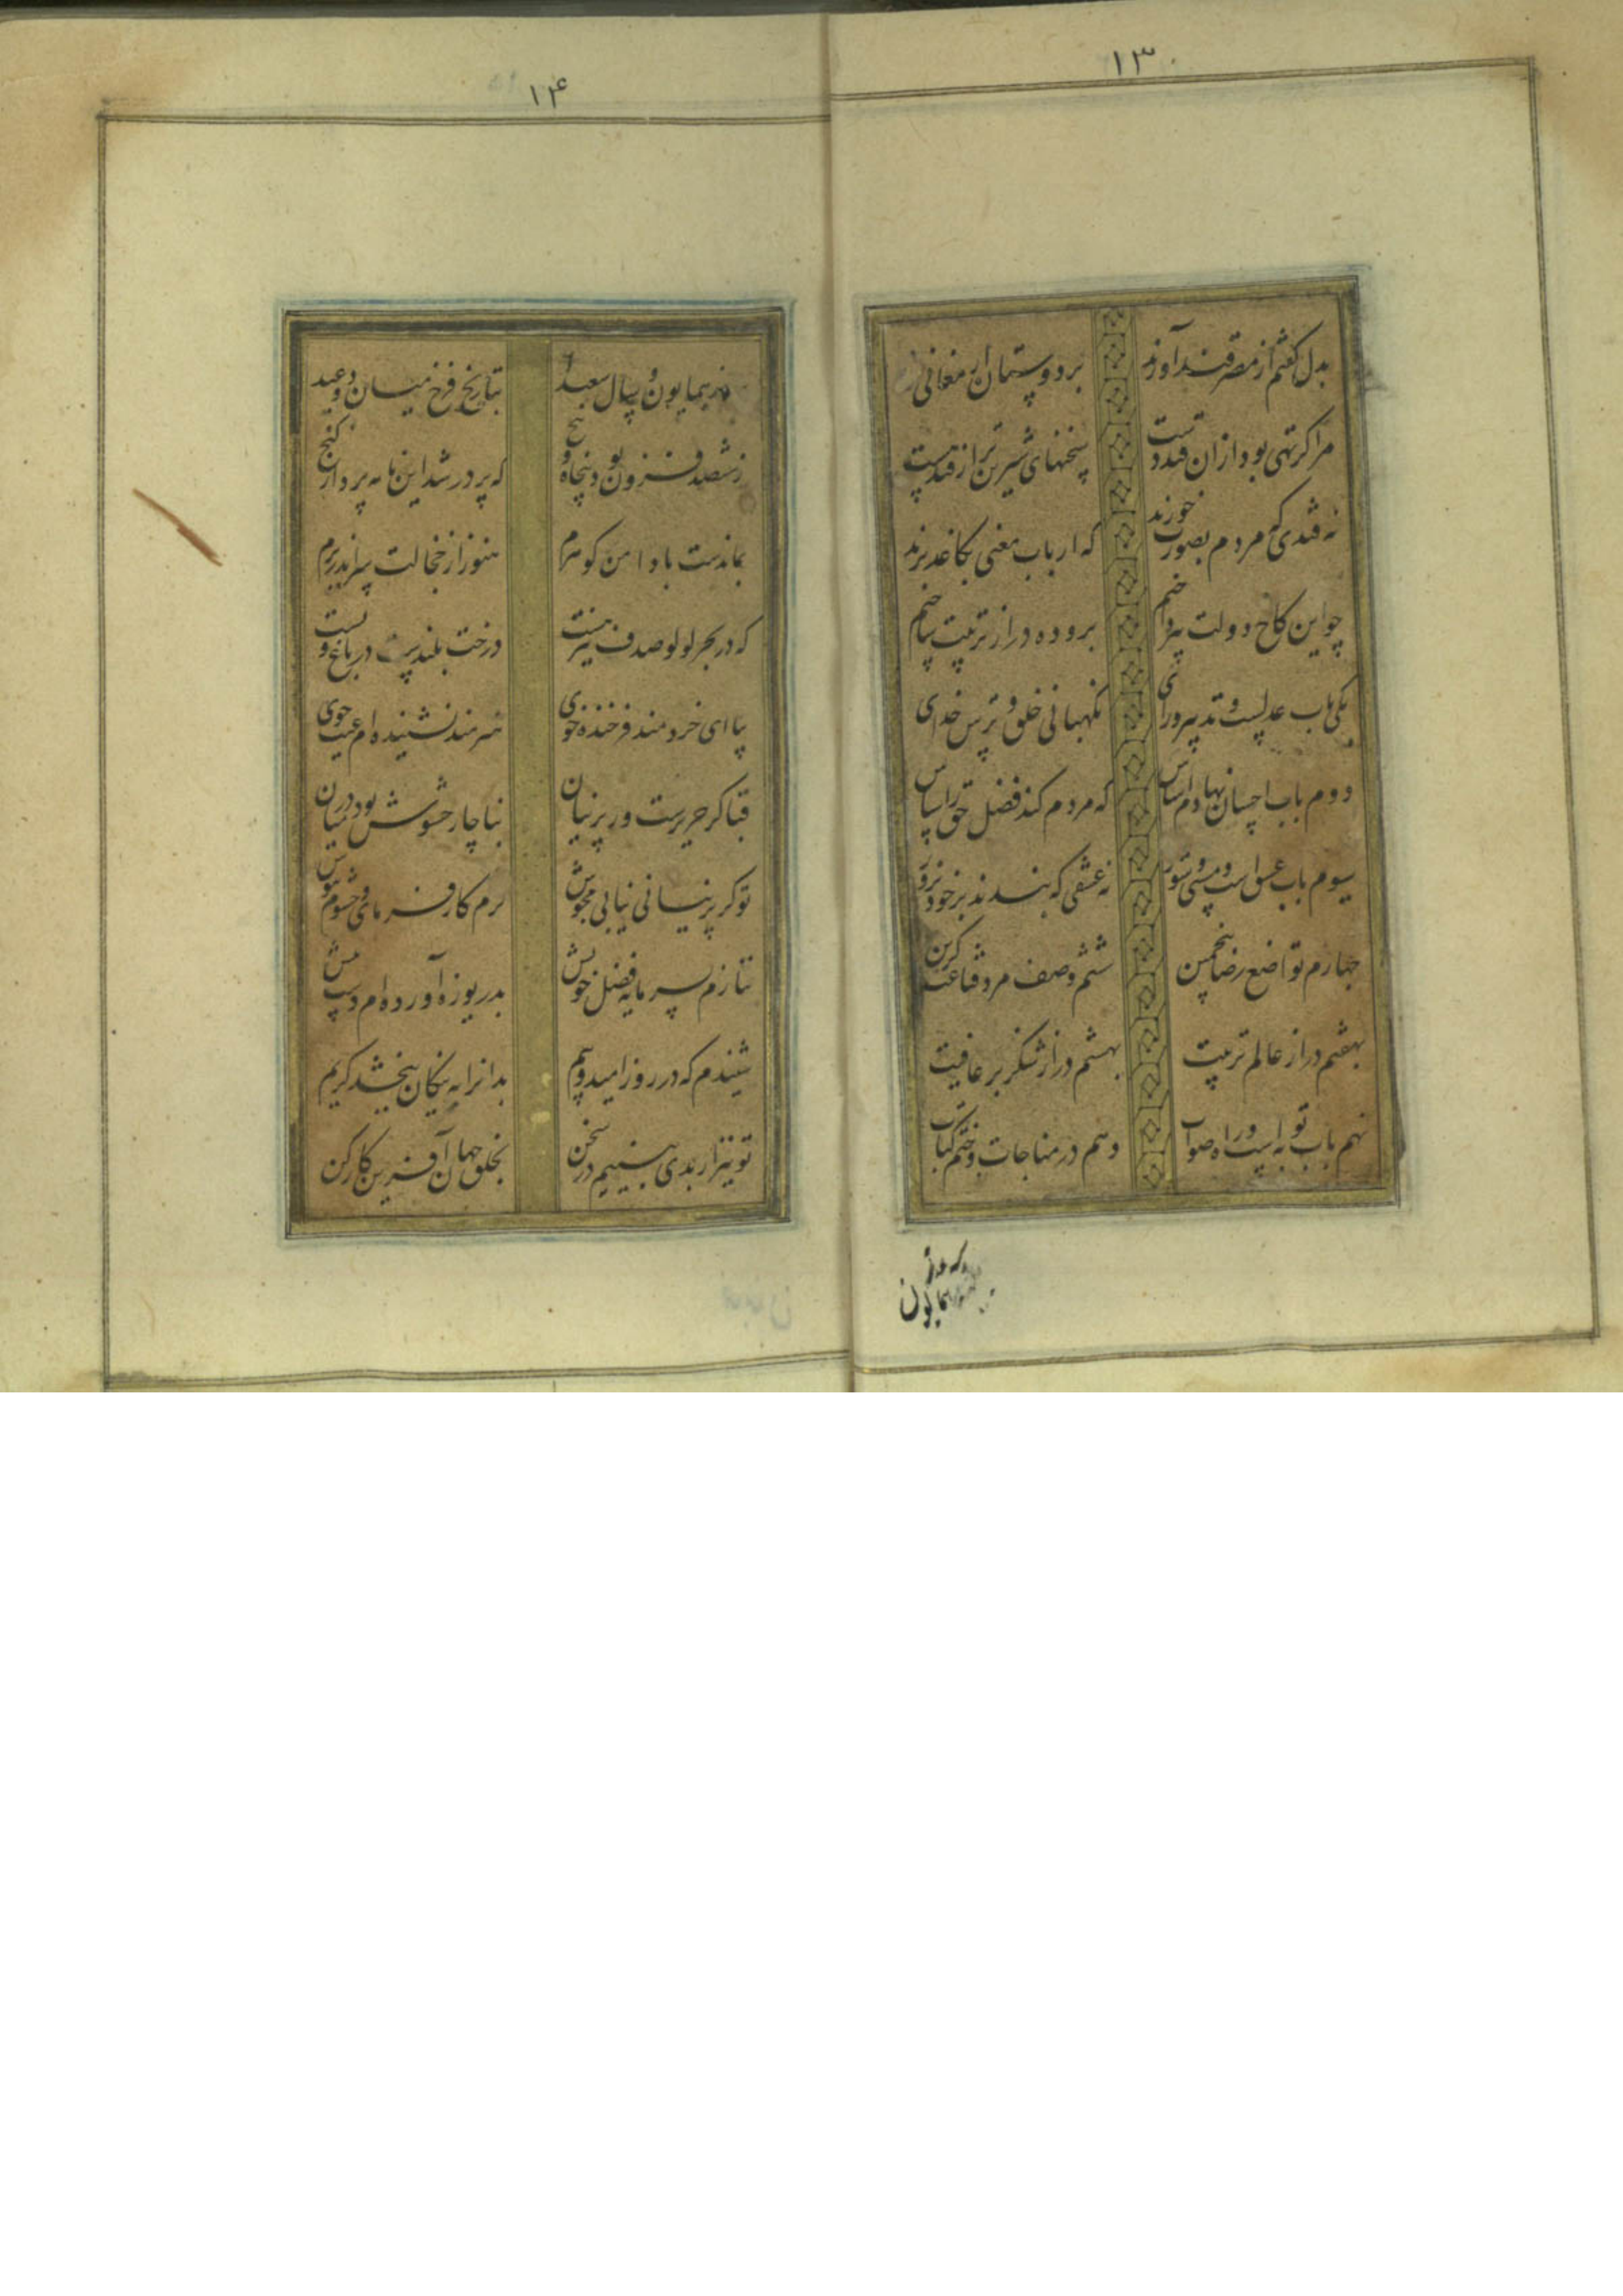 ۱۳
بدل گفتم از مصر قند آورند بر دوستان ارمغانی برند
مرا گر تهی بود از ان قند دست سخنهای شیرین تر از قند هست
نه قندی که مردم بصورت خورند که ارباب معنی بکاغذ برند
چو این کاخ دولت بپرداختم برو ده در از تربیت ساختم
یکی باب عدلست و تدبیر و رای نگهبانی خلق و ترس خدای
دوم باب احسان نهادم اساس که مردم کند فضل حق را سپاس
سیوم باب عشق است و مستی و شور نه عشقی که بندند بر خود بزور
چهارم تواضع رضا پنجمین ششم وصف مرد قناعت گزین
بهفتم در از عالم تربیت بهشتم در از شکر بر عافیت
نهم باب توبه است و راه صواب دهم در مناجات و ختم کتاب
همایون
۱۴
همایون و سال سعید بتاریخ فرخ میان دو عید
ز ششصد فزون بود و پنجاه و پنج که پر در شد این نامه بردار گنج
بماندست با دامن گوهرم هنوز از خجالت سر اندر برم
که در بحر لولو صدف نیز هست درخت بلندست در باغ و پست
یا ای خردمند فرخنده خوی هنرمند نشنیده ام عیب جوی
قبا گر حریرست و ر پرنیان بناچار حشوش بود در میان
تو گر پرنیانی نیابی مجوش کرم کار فرمای و حشوم بپوش
ننازم بسرمایه فضل خویش بدریوزه آورده ام دست پیش
شنیدم که در روز امید و بیم بدانرا به نیکان ببخشد کریم
تو نیز ار بدی بینیم در سخن بخلق جهان آفرین کار کن